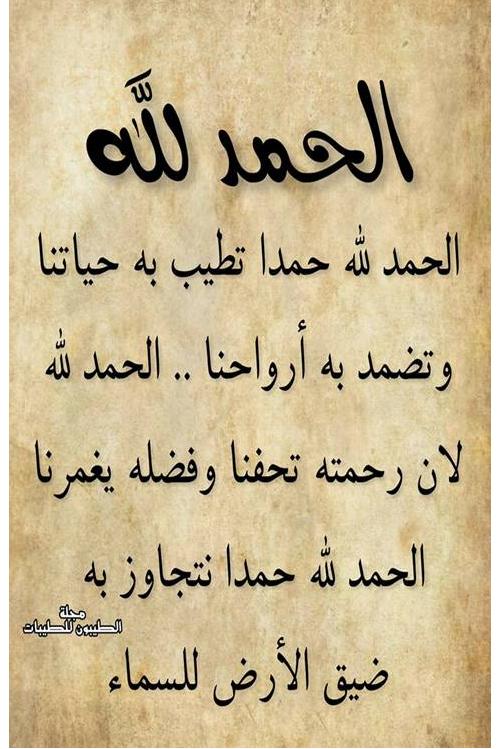 الحمد لله
الحمد لله حمدا تطيب به حياتنا
وتضمد به أرواحنا .. الحمد لله
لان رحمته تحفنا وفضله يغمرنا
الحمد لله حمدا نتجاوز به
مجلة
الطيبون للطيبات
ضيق الأرض للسماء